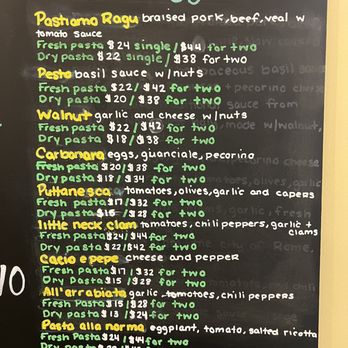 Pashamo Ragu braised pork, beef, veal w
tomato sauce
Fresh pasta $24 single/$44 for two
Dry pasta $22 single/$38 for two
Pesto basil sauce w/nuts
Fresh pasta $22/$42 for two
Dry pasta $20/$38 for two
Walnut garlic and cheese w/nuts
Fresh pasta $22/$42 for two
Dry pasta $18/$38 for two
Carbonara eggs, guanciale, pecorino
Fresh pasta $20/$38 for two
Dry pasta $18/$34 for two
Puttanesca tomatoes, olives, garlic and capers
Fresh pasta $17/$32 for two
Dry pasta $15/$28 for two
little neck clam tomatoes, chili peppers, garlic +
clams
Fresh pasta $24/$44 for two
Dry pasta $22/$42 for two
Cacio e pepe cheese and pepper
Fresh pasta $17/$32 for two
Dry pasta $15/$28 for two
All'arrabiata garlic, tomatoes, chili peppers
Fresh pasta $15/$28 for two
Dry pasta $13/$24 for two
Pasta alla norma eggplant, tomato, salted ricotta
Fresh pasta $24/$44 for two